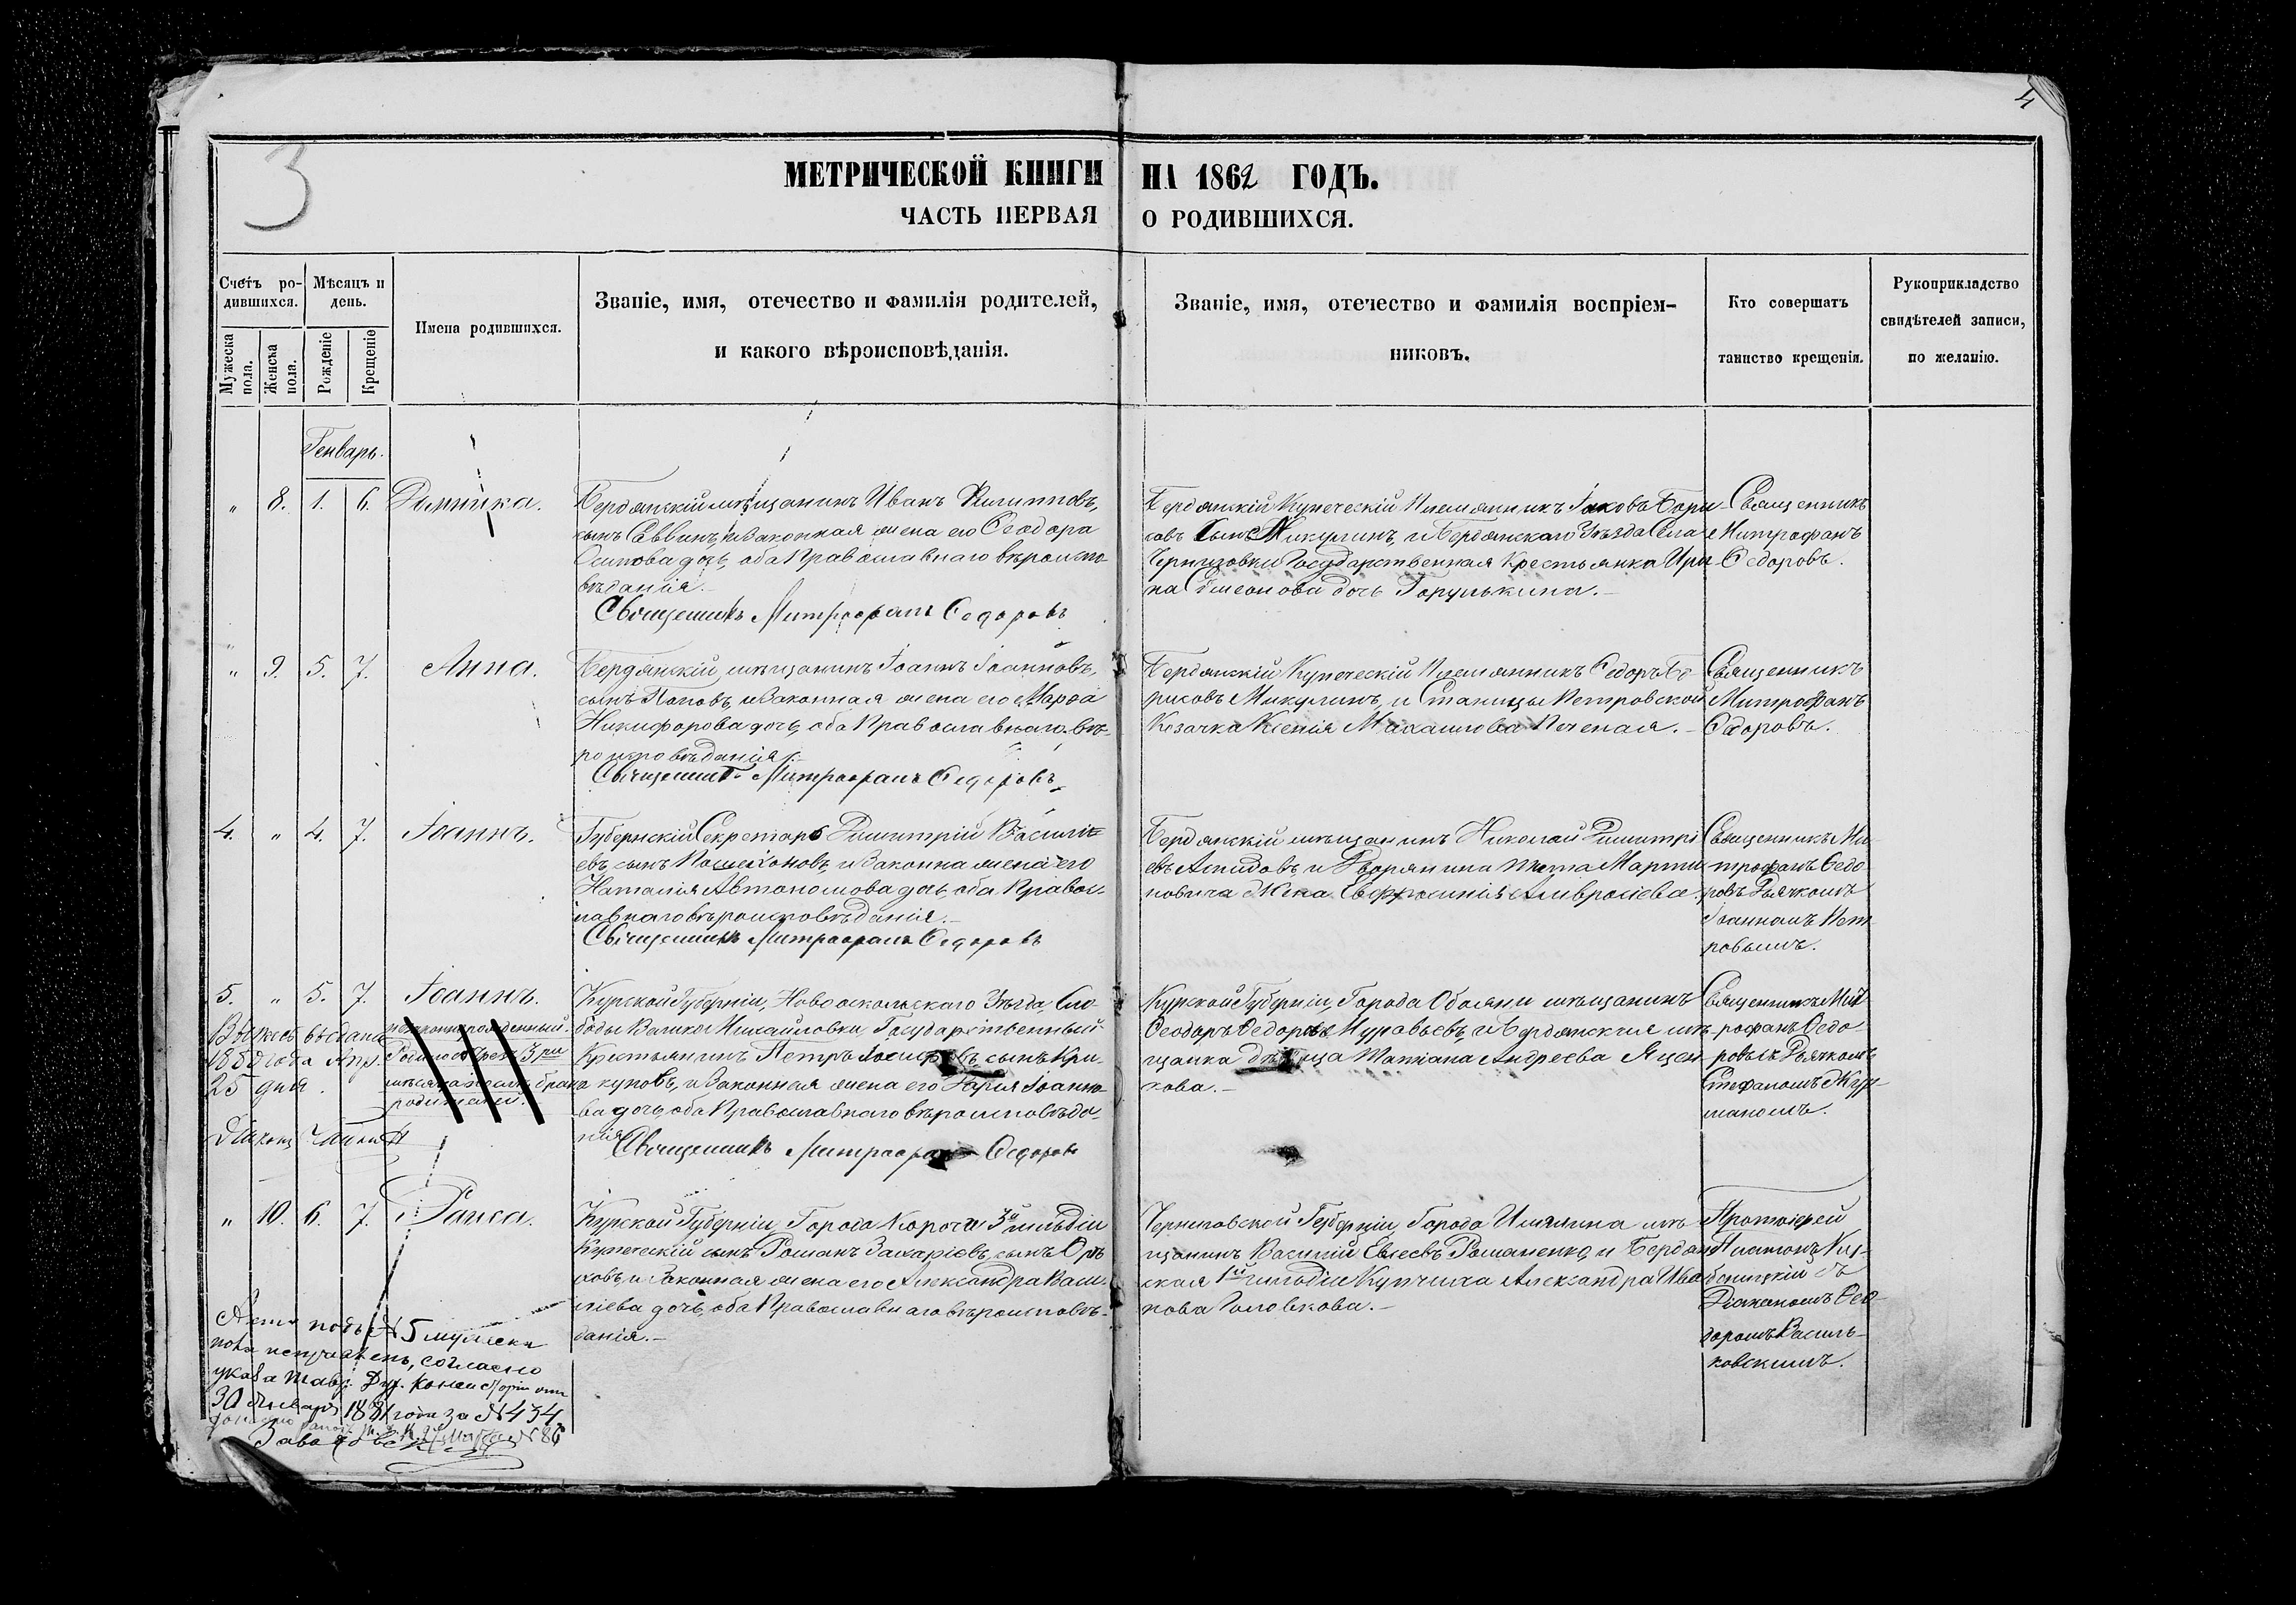 4
3
МЕТРИЧЕСКОЙ КНИГИ НА 1862 ГОДЪ.
ЧАСТЬ ПЕРВАЯ О РОДИВШИХСЯ.
Счетъ ро-
дившихся.
Мужеска пола.
Женска пола.
Мѣсяцъ и
день.
Рожденіе
Крещеніе
Имена родившихся.
Званіе, имя, отечество и фамилія родителей,
и какого вѣроисповѣданія.
Званіе, имя, отечество и фамилія воспріем-
никовъ.
Кто совершатъ
таинство крещенія.
Рукоприкладство
свидѣтелей записи,
по желанію.
Генварь.
" 8. 1. 6. Домника.
Бердянскій мѣщанинъ Иванъ Филипповъ,
сынъ Саввинъ, и Законная жена его Феодора
Осипова дочь, оба Православнаго вѣроиспо-
вѣданія.-
Священникъ Митрофанъ Федоровъ
Бердянскій Купеческій Племянникъ Іаковъ Бори-
совъ Сынъ Микулинъ, и Бердянскаго Уѣзда Села
Черниговки Государственная Крестьянка Ири-
на Симеонова дочь.-
Священникъ
Митрофанъ
Федоровъ.
" 9. 5. 7. Анна.
Бердянскій мѣщанинъ Іоаннъ Іоанновъ,
сынъ Поповъ, и Законная жена его Марфа
Никифорова дочь, оба Православнаго вѣ-
роисповѣданія.-
Священникъ Митрофанъ Федоровъ
Бердянскій Купеческій Племянникъ Федоръ Бо-
рисовъ Микулинъ, и Станицы Петровской
Козачка Ксенія Михаилова.-
Священникъ
Митрофанъ
Федоровъ.
4. " 4. 7. Іоаннъ.
Губернскій Секретарь Димитрій Василі-
евъ, сынъ Пошехоновъ, и Законна жена его
Наталія Автономова дочь, оба Правос-
лавнаго вѣроисповѣданія.-
Священникъ Митрофанъ Федоровъ
Бердянскій мѣщанинъ Николай Димитрі-
евъ, и Дворянина Марти-
новича Жена Евфросинія Амвросіева.
Священникъ Ми-
трофанъ Федо-
ровъ Дьячкомъ
Іоанномъ Пет-
ровымъ.
5. " 5. 7. Іоаннъ.
незаконнорожденный.
Родился чрезъ 3 ри
мѣсяца послѣ брака
родителей.
25 дня.
Курской Губерніи, Новооскольскаго Уѣзда, Сло-
боды Велико Михайловки Государственный
Крестьянинъ Петръ Іосифовъ, сынъ Кри-
куновъ, и Законная жена его Дарія Іоанно-
ва дочь, оба Православнаго вѣроисповѣда-
нія.
Священникъ Митрофанъ Федоровъ
Курской Губерніи, Города Обояни мѣщанинъ
Феодоръ Федоровъ Муравьевъ, и Бердянская мѣ-
щанка дѣвица Татіана Андреева Яцен-
кова.-
Священникъ Мит-
рофанъ Федо-
ровъ съ Дьячкомъ
Стефаномъ
" 10. 6. 7. Раиса.
Курской Губерніи Города Корочи 3й гильдіи
Купеческій сынъ Романъ Захаріевъ, сынъ Орѣ-
ховъ, и Законная жена его Александра Васи-
ліева дочь, оба Православнаго вѣроисповѣ-
данія.-
Черниговской Губерніи Города мѣ-
щанинъ Василій Евсеевъ Романенко, и Бердян-
ская 1й гильдіи Купчиха Александра Ива-
нова Головкова.-
Протоіерей
съ
Діакономъ Фео-
доромъ Василь-
ковскимъ.
Актъ подъ № 5 мужеска
пола исправленъ, согласно
указа Тавр. Дух. Консисторіи отъ
30 Января 1881 года за № 434